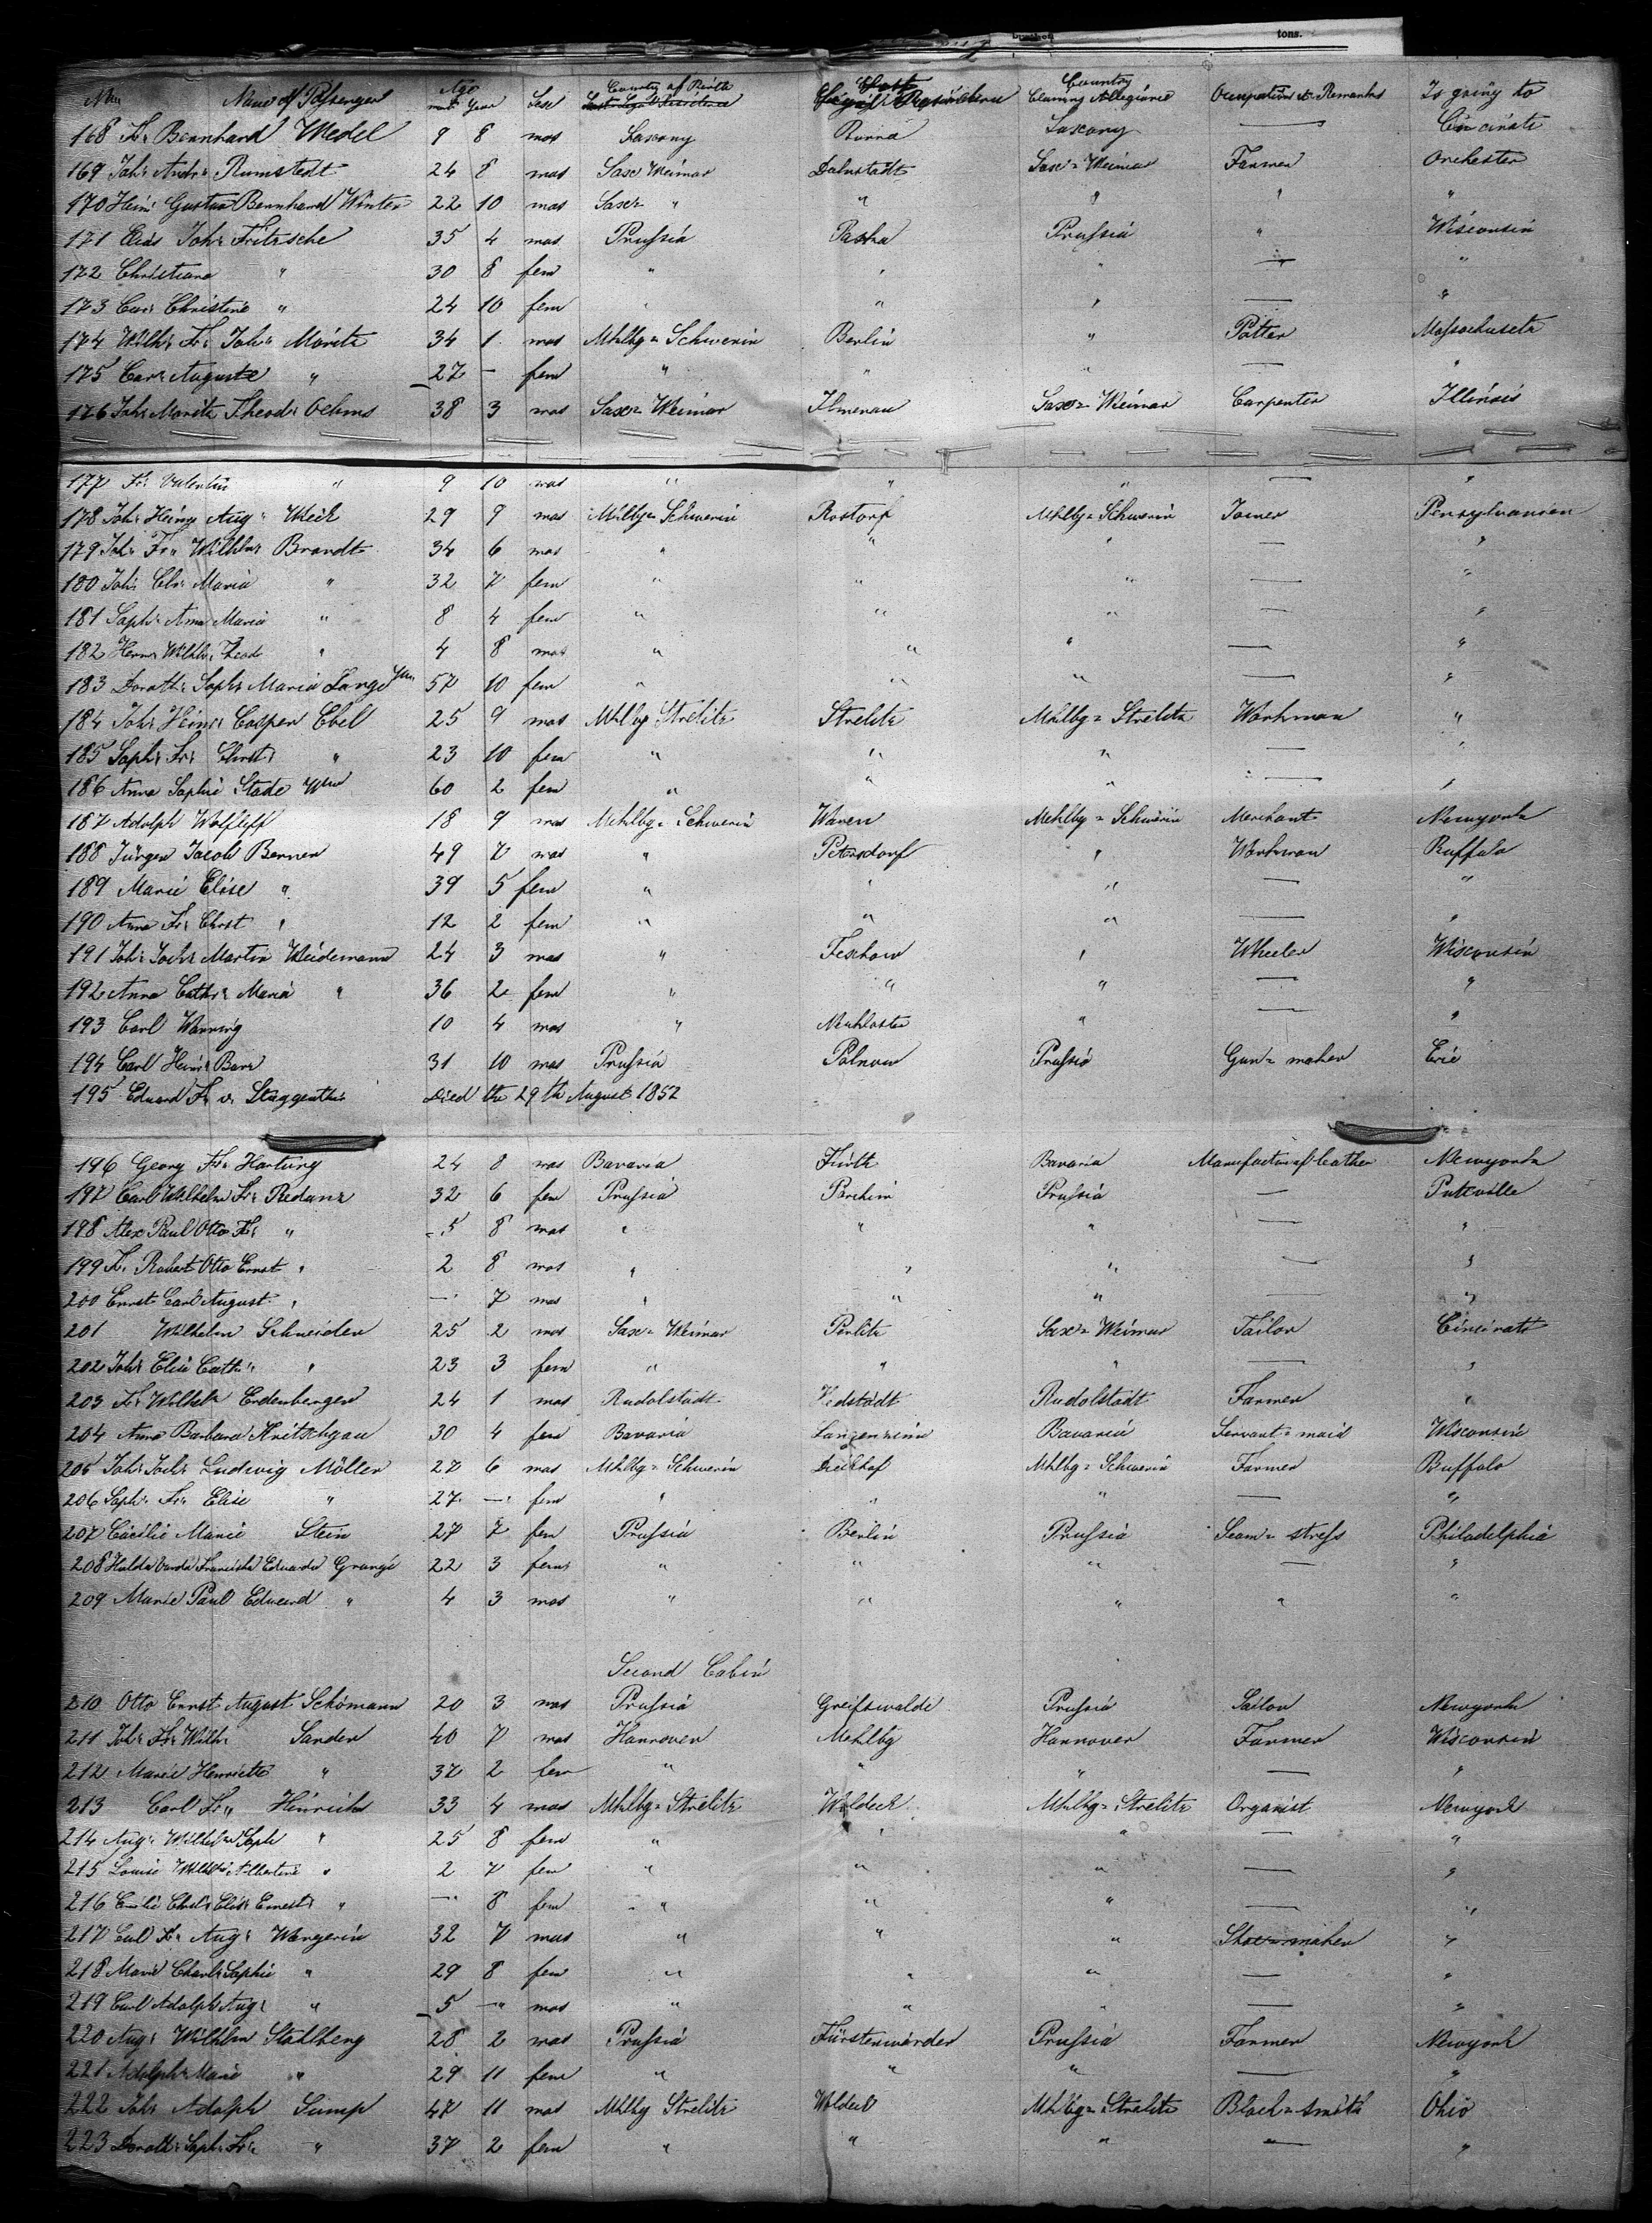 tons.
Name of Passenger Age Year Sex Country of Birth Last Residence Country Claiming Allegiance Occupation & Remarks Is going to
168 Fr. Bernhard Wedel 9 8 mas Saxony Saxony — Cincinati
169 Joh: Andr: Rumstedt 24 8 mas Saxe Weimar Saxe = Weimar Farmer
170 Hein: Gustav Bernhard Winter 22 10 mas Saxe " " " " "
171 Elias Joh: Fritzsche 35 4 mas Prussia Prussia " Wisconsin
172 Christiane " 30 8 fem " " " — "
173 Car: Christine " 24 10 fem " " " — "
174 Wilh: Fr: Joh: Moritz 34 1 mas Mklbg = Schwerin Berlin " Potter Massachusets
175 Car: Auguste " 27 — fem " " " — "
176 Joh: Moritz Theod: Oehms 38 3 mas Saxe = Weimar Ilmenau Saxe = Weimar Carpenter Illinois
177 Fr: Valentin " 9 10 mas " " " — "
178 Joh: Heinr Aug: 29 9 mas Mklbg = Schwerin Rostorf Mklbg = Schwerin Joiner Pensylvanien
179 Joh: Fr: Wilhlm: Brandt 34 6 mas " " " — "
180 Joh: Chr: Maria " 32 7 fem " " " — "
181 Soph: Anna Maria " 8 4 fem " " " — "
182 Herm: Wilhlm: Theod " 4 8 mas " " " — "
183 Doroth: Soph: Maria Lange 57 10 fem " " " — "
184 Joh: Heinr: Casper Ebel 25 9 mas Mklbg Strelitz Strelitz Mklbg = Strelitz Workman "
185 Soph: Fr: Christ: " 23 10 fem " " " — "
186 Anna Sophie Stade Ww 60 2 fem " " " — "
187 Adolph Wolfleff 18 9 mas Meklbg = Schwerin Waren Meklbg = Schwerin Merchant Newyork
188 Jürgen Jacob Berner 49 7 mas " Petersdorf " Workman Buffalo
189 Marie Elise " 39 5 fem " " " — "
190 Anna Fr: Christ " 12 2 fem " " " — "
191 Joh: Joch: Martin Weidemann 24 3 mas " Teschow " Wheeler Wisconsin
192 Anna Cath: Maria " 36 2 fem " " " — "
193 Carl Warning 10 4 mas " " — "
194 Carl Heinr: 31 10 mas Prussia Polnow Prussia Gun = maker Erie
195 Eduard Fr. v. Died the 29th August 1852
196 Georg Fr: Hartung 24 8 mas Bavaria Fürth Bavaria Manufactur of leather Newyork
197 Carl Wilhelm Fr: Redanz 32 6 fem Prussia Parchim Prussia —
198 Alex Paul Otto Fr: " 5 8 mas " " " — "
199 Fr. Robert Otto Ernst " 2 8 mas " " " — "
200 Ernst Carl August " — 7 mas " " " — "
201 Wilhelm Schneider 25 2 mas Saxe = Weimar Saxe = Weimar Tailor Cincinati
202 Joh: Elise Cath: " 23 3 fem " " " — "
203 Fr: Wilhelm Erdenberger 24 1 mas Rudolstadt Rudolstadt Farmer "
204 Anna Barbara Kritschgau 30 4 fem Bavaria Bavaria Servant = maid Wisconsin
205 Joh: Joch: Ludwig Möller 27 6 mas Mklbg = Schwerin Mklbg = Schwerin Farmer Buffalo
206 Soph: Fr: Elise " 27 — fem " " " — "
207 Cäcilie Marie Stein 27 7 fem Prussia Berlin Prussia Seam = stress Philadelphia
208 Hulda Franciska Eduarda Grange 22 3 fem " " " — "
209 Marie Paul Edward " 4 3 mas " " " "
Second Cabin
210 Otto Ernst August Schömann 20 3 mas Prussia Greifswalde Prussia Sailor Newyork
211 Joh: Fr: Wilh: Sander 40 7 mas Hannover Mehlbg Hannover Farmer Wisconsin
212 Marie Henriette " 37 2 fem " " " — "
213 Carl Fr: Hinrichs 33 4 mas Mklbg = Strelitz Woldeck Mklbg = Strelitz Organist Newyork
214 Aug: Wilhelm Soph " 25 8 fem " " " — "
215 Louise Wilhlm: Albertine " 2 7 fem " " " — "
216 Emilie Christ: Elis: Ernest: " — 8 fem " " " — "
217 Carl Fr: Aug: Wangerin 32 7 mas " " " Shoe = maker "
218 Marie Charl: Sophie " 29 8 fem " " " — "
219 Carl Adolph Aug: " 5 — mas " " " — "
220 Aug: Wilhlm Stahlberg 28 2 mas Prussia Fürstenwerder Prussia Farmer Newyork
221 Adolph: Marie " 29 11 fem " " " — "
222 Joh: Adolph Sump 47 11 mas Mklbg Strelitz Woldeck Mklbg = Strelitz Black = smith Ohio
223 Doroth: Soph: Fr: " 37 2 fem " " " — "